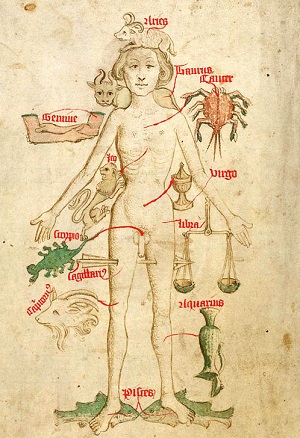 Aries
Taurus
Cancer
Gemine
Leo
Virgo
Libra
Scorpio
Sagittari9
Capricorn9
Aquarius
Pisces